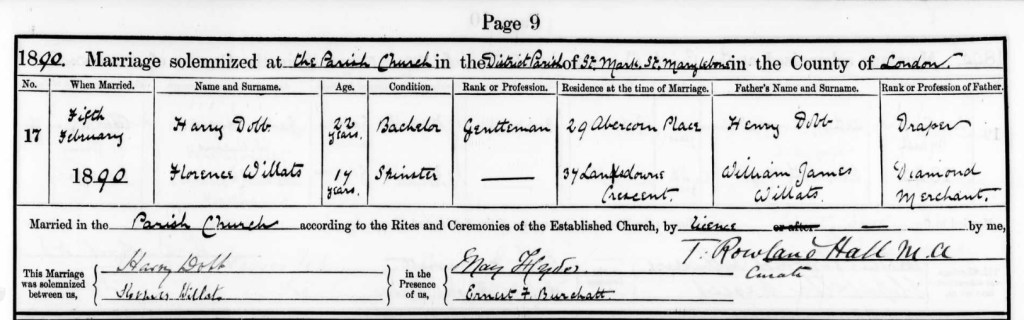 Page 9
1890. Marriage solemnized at the Parish Church in the District Parish of St. Mark. St. Marylebone in the County of London.
No. When Married. Name and Surname. Age. Condition. Rank or Profession. Residence at the time of Marriage. Father's Name and Surname. Rank or Profession of Father.
17 Fifth February Harry Dobb 22 years. Bachelor Gentleman 29 Abercorn Place Henry Dobb Draper
1890 Florence Willats 17 years. Spinster — 37 Lansdowne Crescent. William James Willats. Diamond Merchant.
Married in the Parish Church according to the Rites and Ceremonies of the Established Church, by licence or after — by me,
T. Rowland Hall M.A
Curate
This Marriage was solemnized between us, { Harry Dobb
Florence Willats } in the Presence of us, { May
Ernest F. Burchatt. }